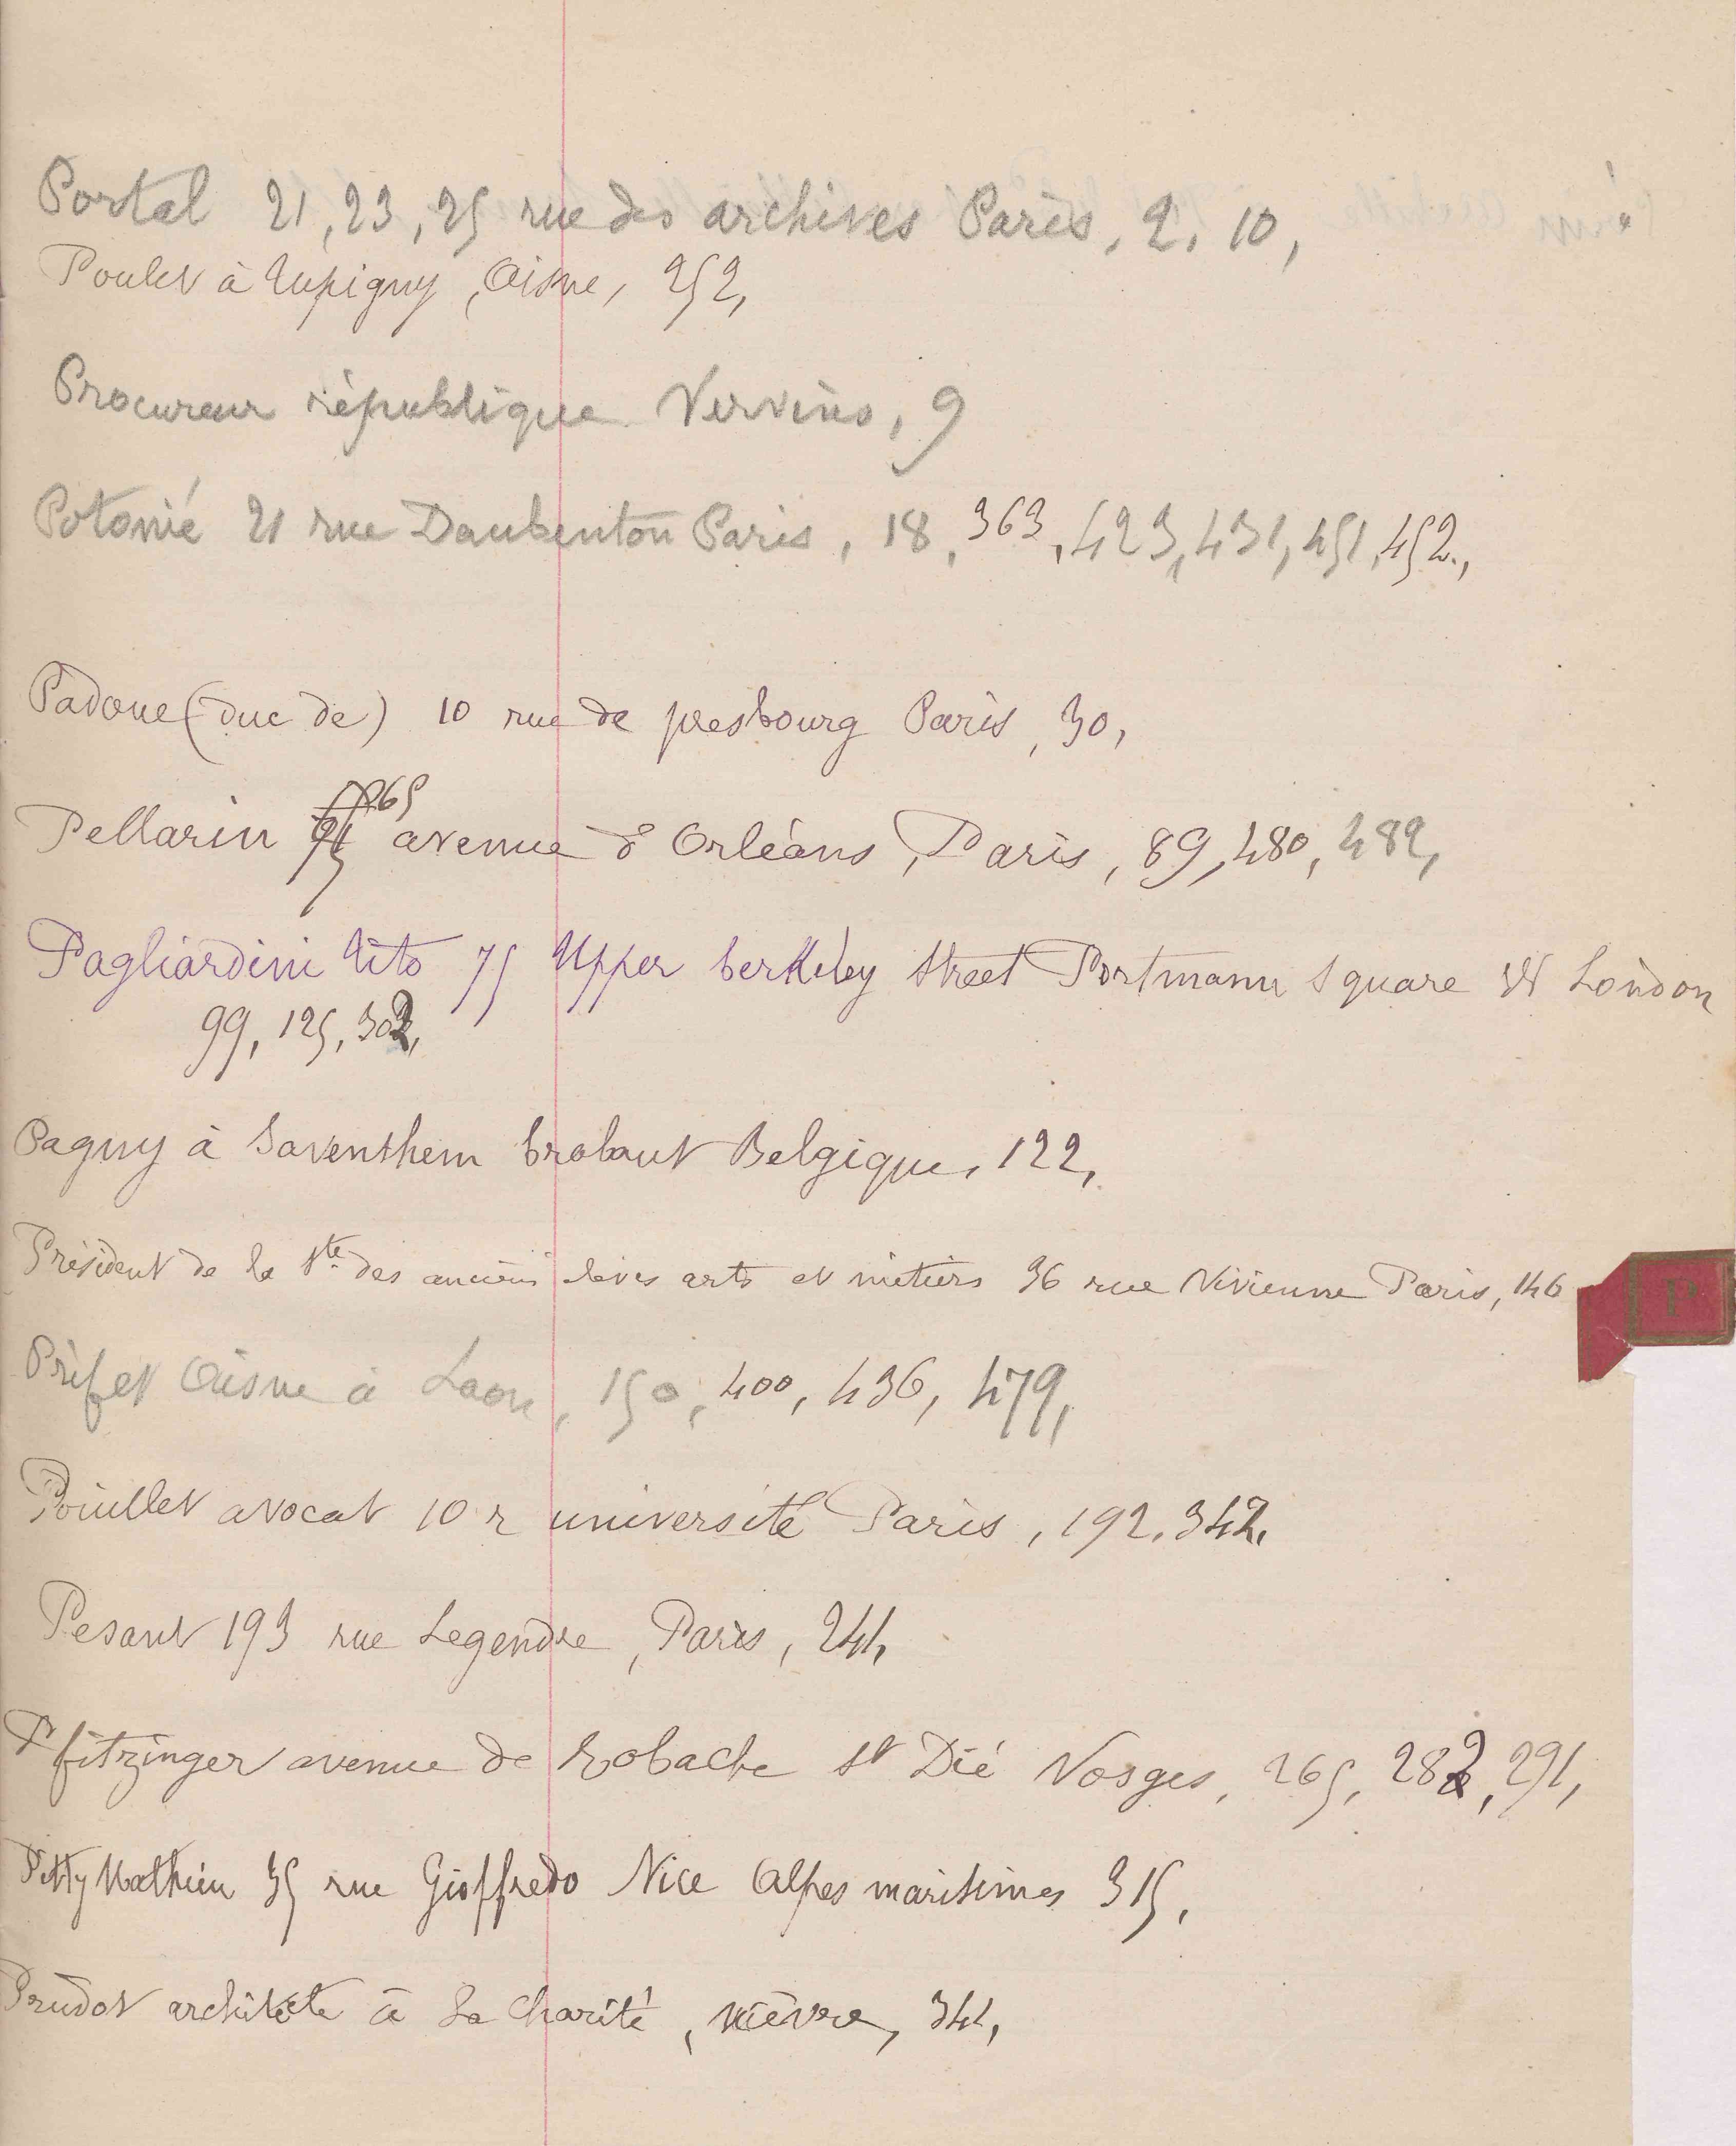 Portal 21, 23, 25 rue des archives Paris, 2, 10,
Poulet à Lupigny, Aisne, 252,
Procureur république Vervins, 9
Potonié 21 rue Daubenton Paris, 18, 363, 423, 431, 451, 452,
Padoue (duc de) 10 rue de presbourg Paris, 30,
Pellarin avenue d'Orléans, Paris, 89, 480, 482,
Pagliardini Tito 75 Upper berkeley street Portmann square W London
99, 125, 302,
Pagny à Saventhem brabant Belgique, 122,
Président de la Sté des anciens élèves arts et métiers 36 rue Vivienne Paris, 146
P
Préfet Aisne à Laon, 150, 400, 436, 479,
Pouillet avocat 10 r université Paris, 192, 342,
Pesant 193 rue Legendre, Paris, 241,
Pfitzinger avenue de Robache St Dié Vosges, 265, 282, 291,
Petty Mathieu 35 rue Gioffredo Nice Alpes maritimes 315,
Prudot architecte à La Charité, Nièvre, 341,